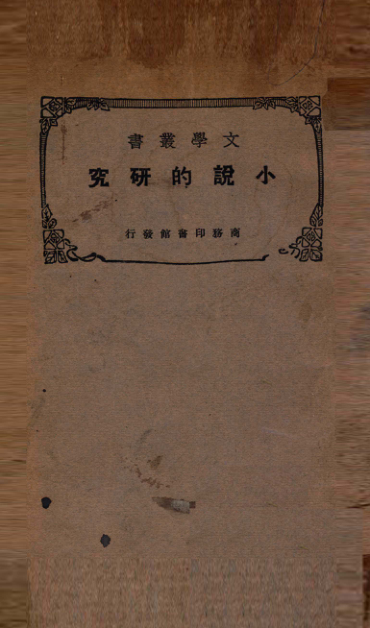 文學叢書
小說的研究
商務印書館發行